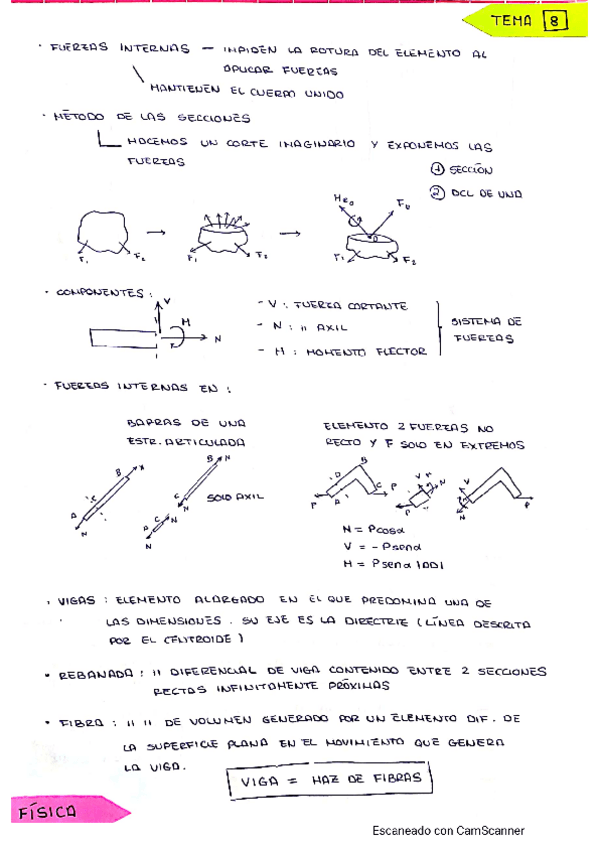 TEMA 8
· FUERZAS INTERNAS – IMPIDEN LA ROTURA DEL ELEMENTO AL
APLICAR FUERZAS
MANTIENEN EL CUERPO UNIDO
· MÉTODO DE LAS SECCIONES
HACEMOS UN CORTE IMAGINARIO Y EXPONEMOS LAS
FUERZAS
① SECCIÓN
② DCL DE UNA
F1 F2
F1 F2
F1 F2
· COMPONENTES:
V
M
N
- V: FUERZA CORTANTE
- N: 11 AXIL
- M: MOMENTO FLECTOR
SISTEMA DE
FUERZAS
· FUERZAS INTERNAS EN:
BARRAS DE UNA
ESTR. ARTICULADA
ELEMENTO 2 FUERZAS NO
RECTO Y F SOLO EN EXTREMOS
A C B N
A C N
C B N
SOLO AXIL
P A D B C P
P V M N
V N P
N = Pcosα
V = -Psenα
M = Psenα |AD|
· VIGAS: ELEMENTO ALARGADO EN EL QUE PREDOMINA UNA DE
LAS DIMENSIONES. SU EJE ES LA DIRECTRIZ (LÍNEA DESCRITA
POR EL CENTROIDE)
· REBANADA: 11 DIFERENCIAL DE VIGA CONTENIDO ENTRE 2 SECCIONES
RECTAS INFINITAMENTE PRÓXIMAS
· FIBRA: 11 11 DE VOLUMEN GENERADO POR UN ELEMENTO DIF. DE
LA SUPERFICIE PLANA EN EL MOVIMIENTO QUE GENERA
LA VIGA.
VIGA = HAZ DE FIBRAS
FÍSICA
Escaneado con CamScanner